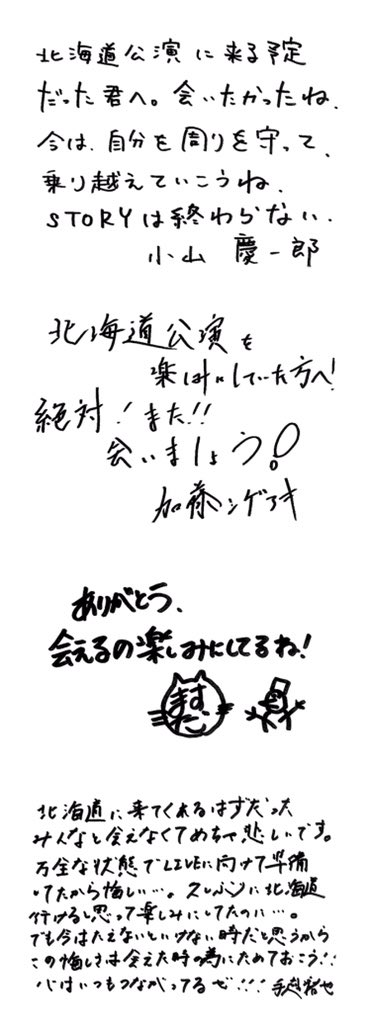 北海道公演に来る予定
だった君へ。会いたかったね.
今は、自分を周りを守って、
乗り越えていこうね、
STORYは終わらない.
小山 慶一郎
北海道公演を
楽しみにしていた方へ!
絶対!また!!
会いましょう!
加藤シゲアキ
ありがとう、
会えるの楽しみにしてるね!
ますだ
北海道に来てくれるはずだった
みんなと会えなくてめちゃ悲しいです。
万全な状態でLIVEに向けて準備
してたから悔しい…。久しぶりに北海道
行けると思って楽しみにしてたのに…。
でも今はたえないといけない時だと思うから
この悔しさは会えた時の為にためておこう!!
心はいつもつながってるぜ!!! 手越祐也